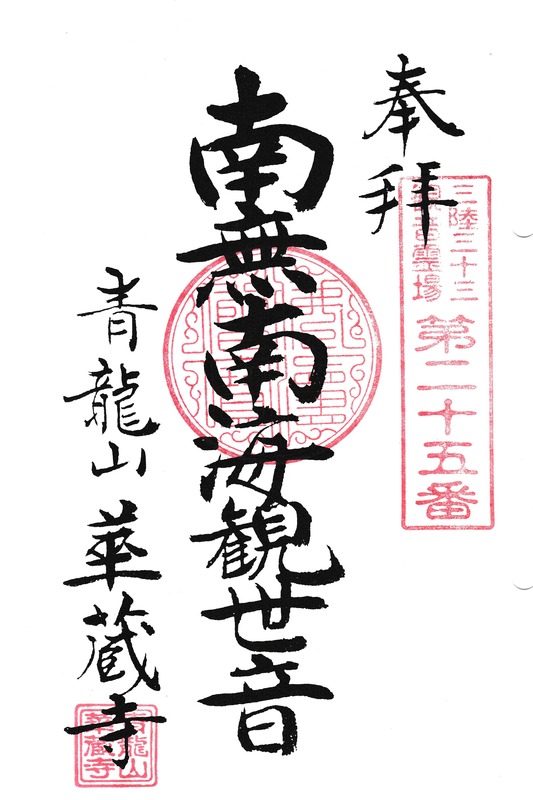 奉拝
三陸三十三
観音霊場
第二十五番
南無南海観世音
青龍山 華蔵寺
青龍山
華蔵寺